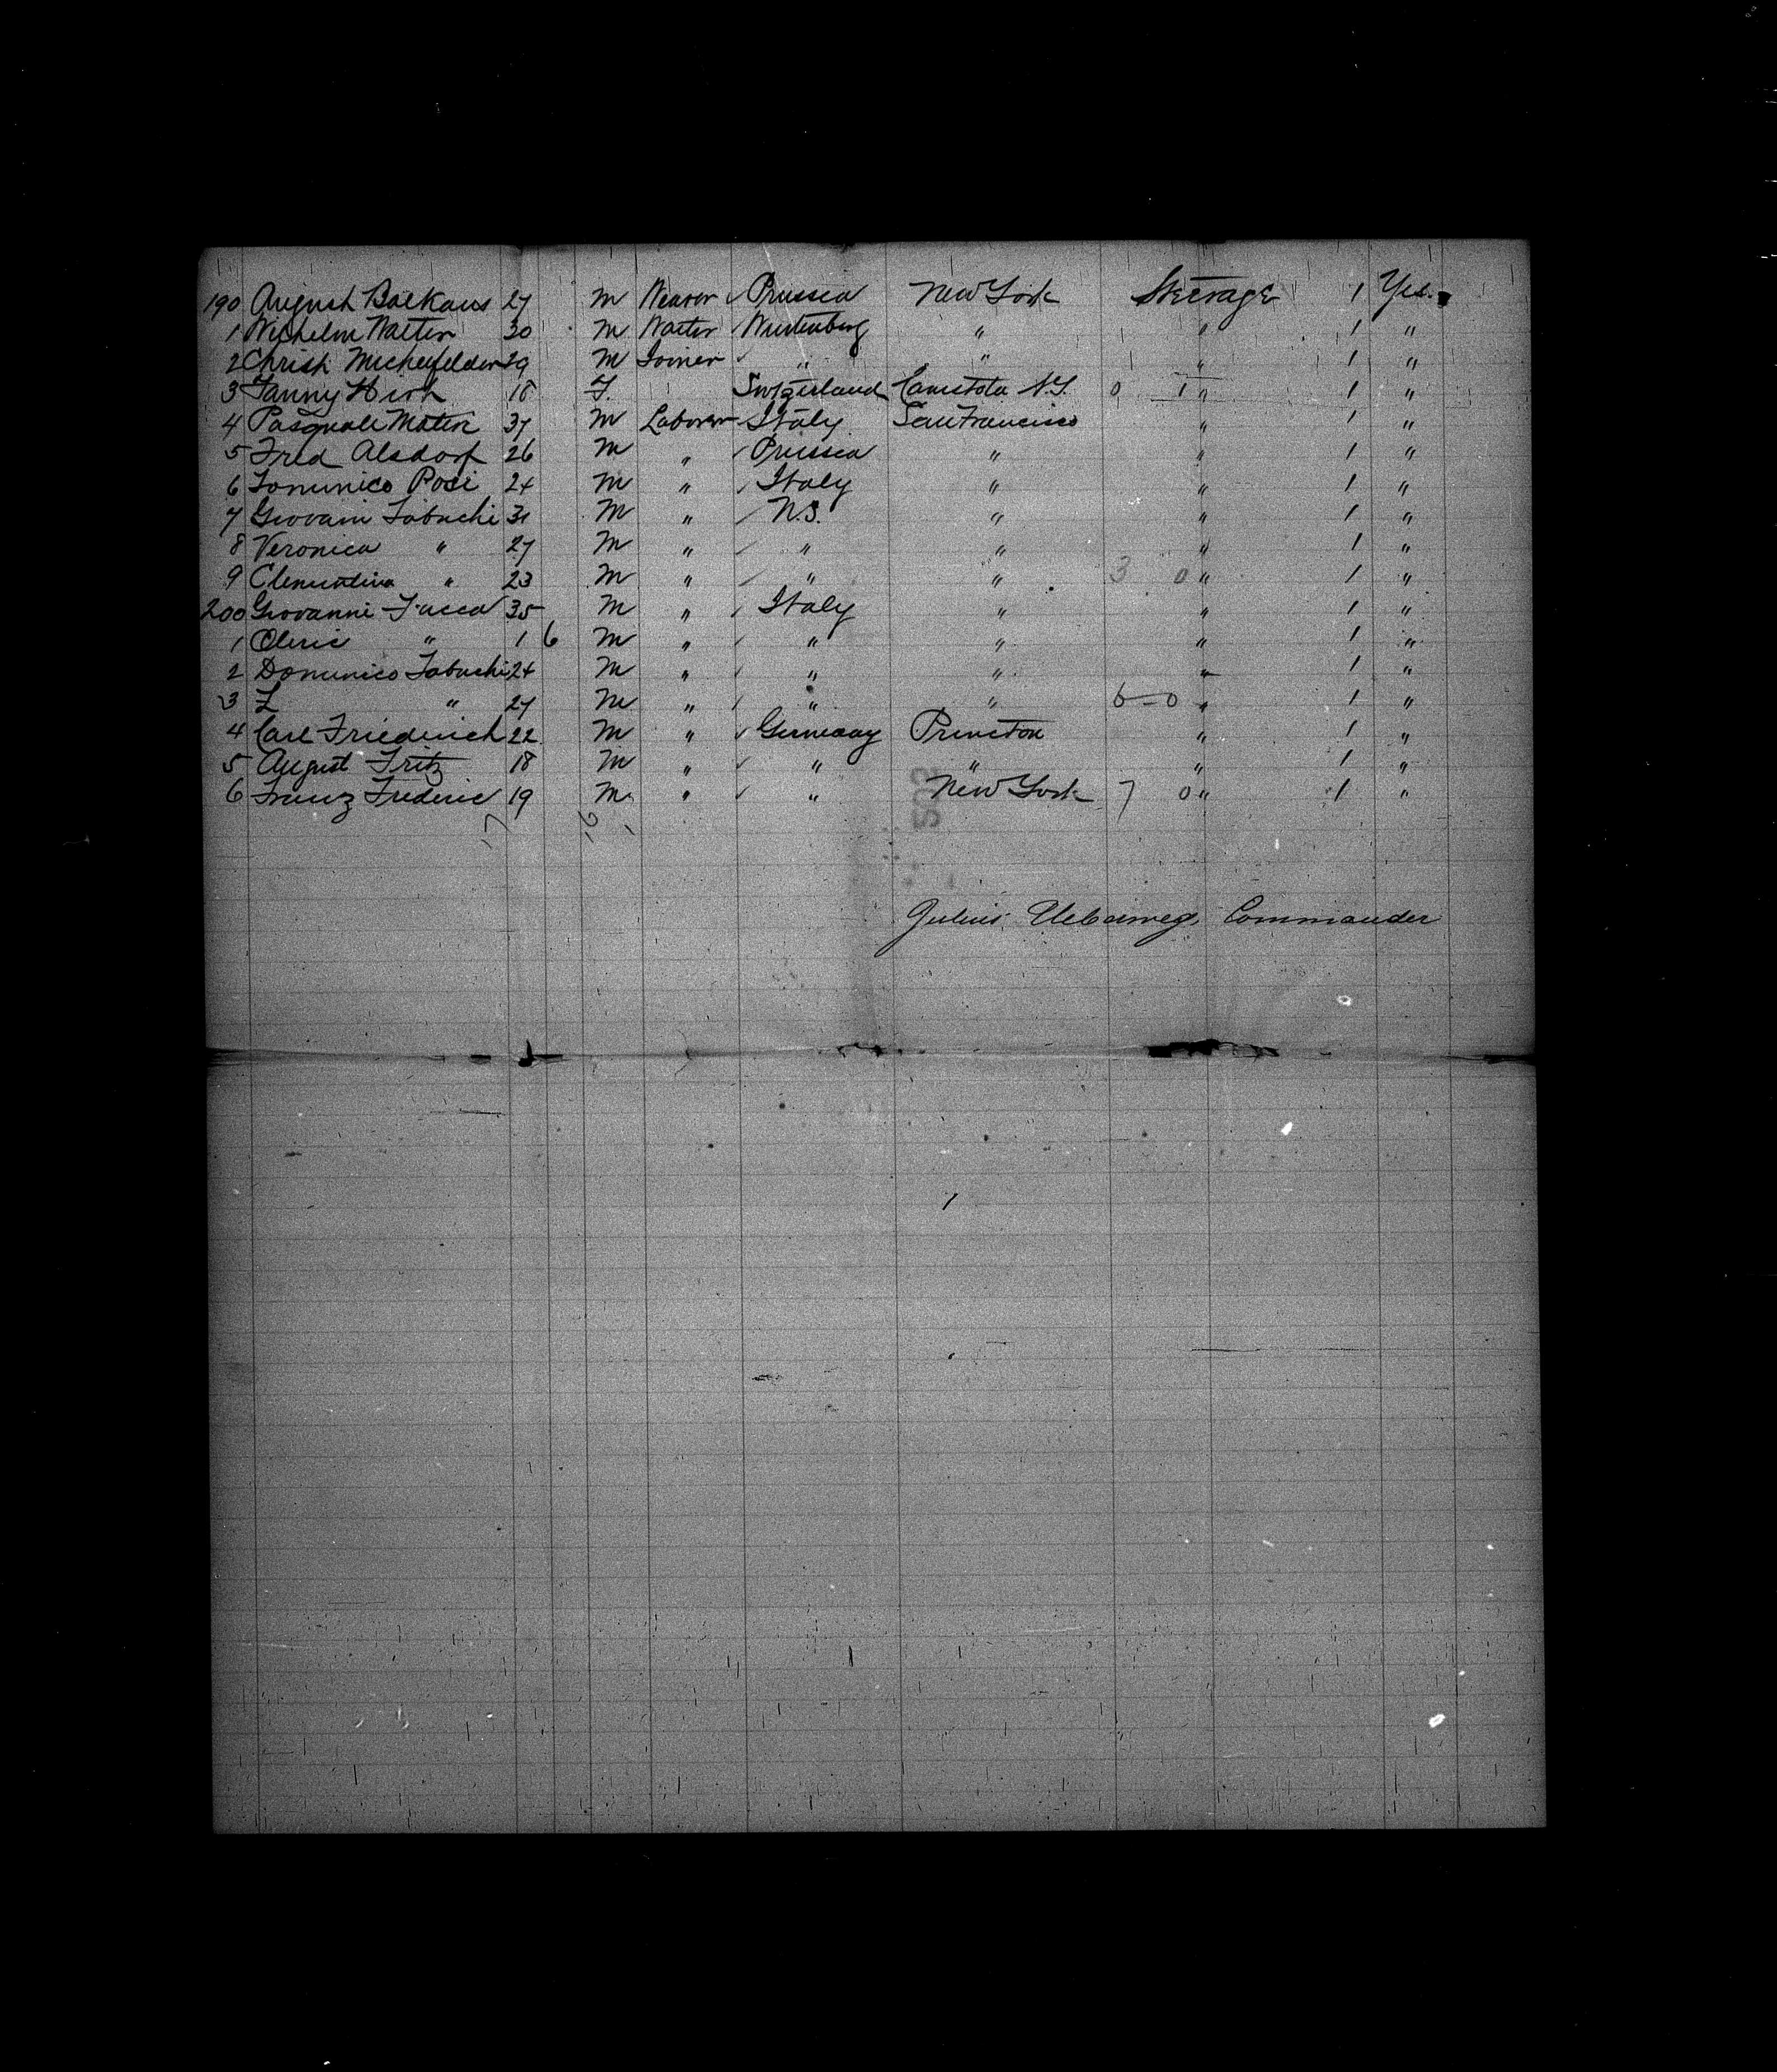 190 August Backaus 27 M Weaver Prussia New York Steerage 1 Yes.
1 Wilhelm Walter 30 M Waiter Wurtenberg " " 1 "
2 Christ Micheyfelder 29 M Joiner " " " 1 "
3 Fanny Hirk 18 F. Switzerland Canestota N.Y. 0 1 " 1 "
4 Pasquale Moten 37 M Laborer Italy San Francisco " 1 "
5 Fred Alsdorf 26 M " Prussia " " 1 "
6 Tominico Posi 24 M " Italy " " 1 "
7 Giovani Tabuchi 31 M " N.S. " " 1 "
8 Veronica " 27 M " " " " 1 "
9 Clementina " 23 M " " " 3 0 " 1 "
200 Giovanni Fucca 35 M " Italy " " 1 "
1 " 1 6 M " " " " 1 "
2 Dominico Tabuchi 24 M " " " " 1 "
3 " 27 M " " " 6-0 " 1 "
4 Carl Friederich 22 M " Germany Princeton " 1 "
5 August Fritz 18 M " " " " 1 "
6 Franz Frederic 19 M " " New York 7 0 " 1 "
Julius Ueberweg, Commander